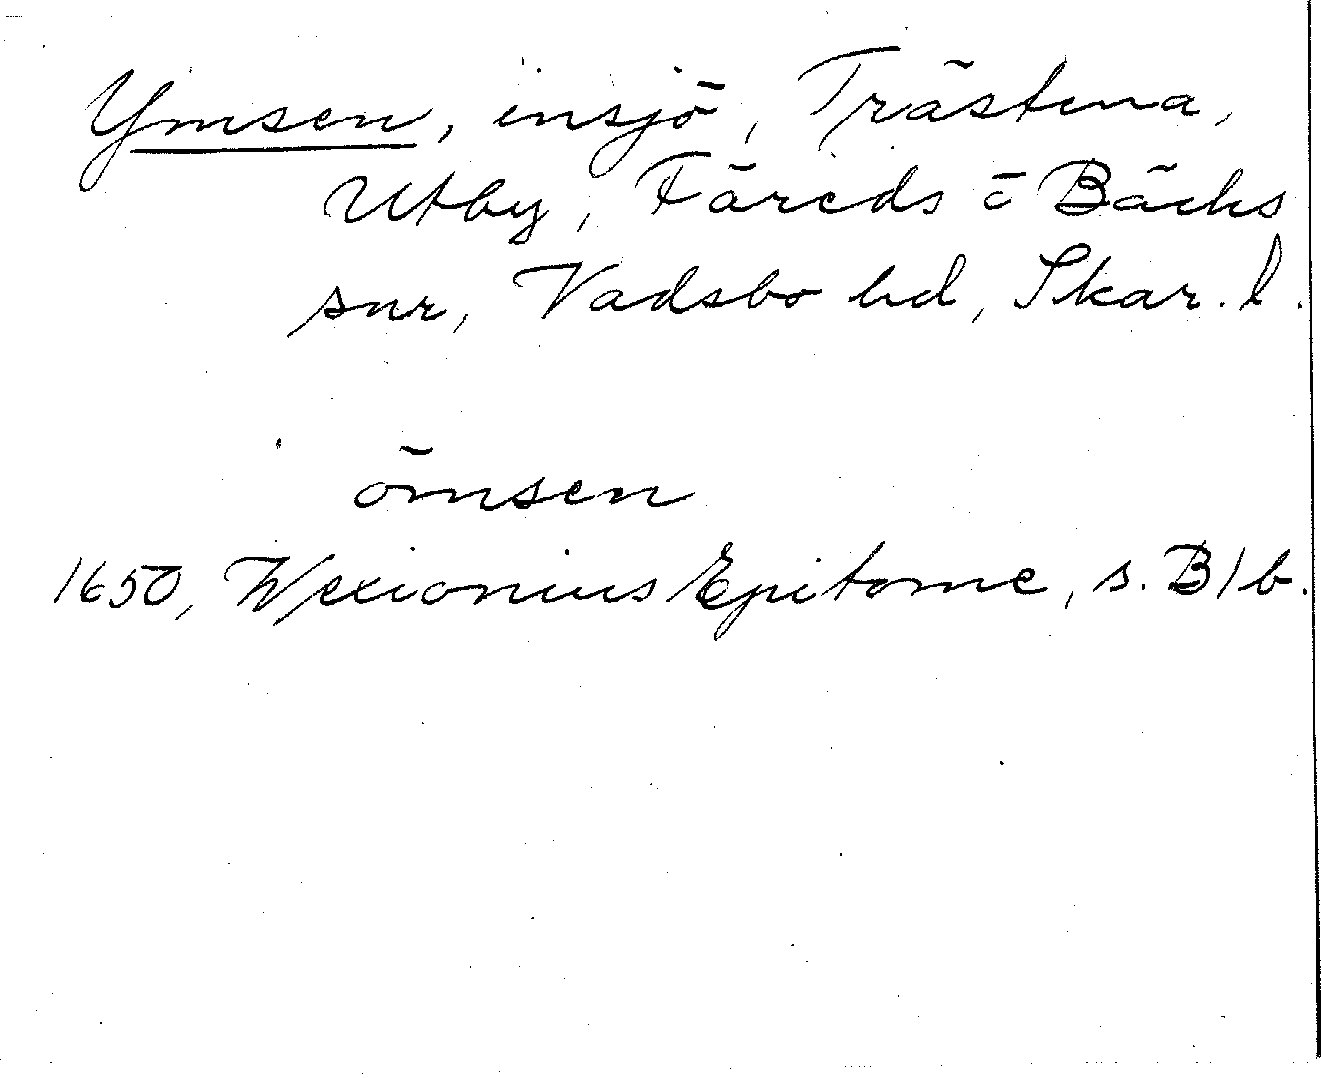 Ymsen, insjö, Trästena,
Utby, Färeds o Bäcks
snr, Vadsbo hd, Skar. l.
ömsen
1650, Wexionius Epitome, s. B1b.